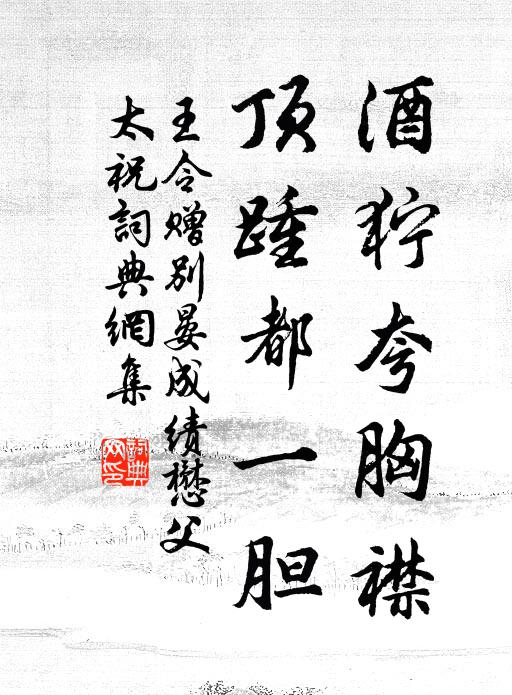 酒狞夸胸襟
顶踵都一胆
王令赠别晏成绩懋父
太祝詞典網集
詞典網印